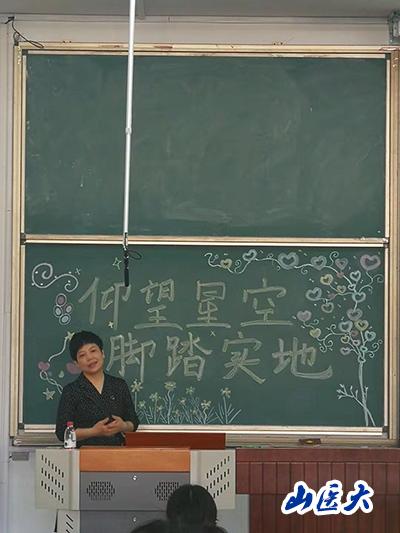 仰望星空
脚踏实地
山医大